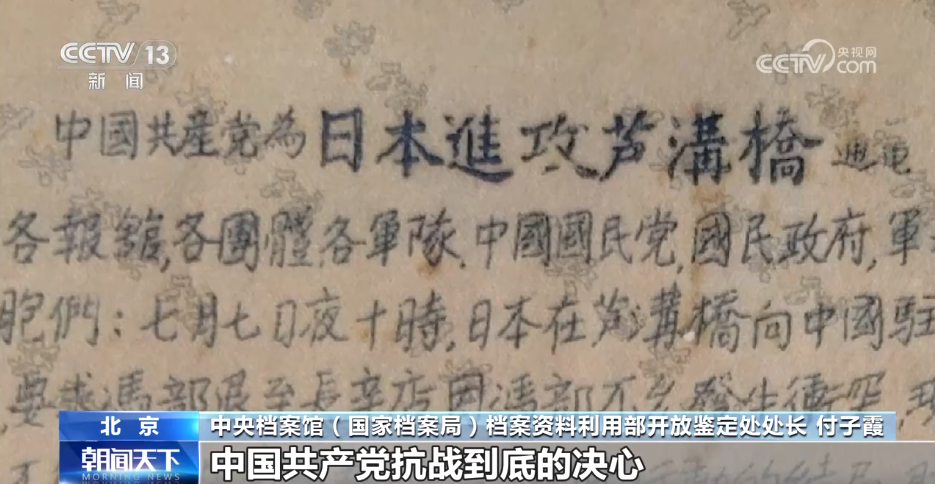 CCTV 13
新闻
CCTV 央视网
com
中國共產党為日本進攻芦溝橋通電
各報舘,各團體,各軍隊,中國國民党,國民政府,軍
胞們:七月七日夜十時,日本在芦溝橋向中國駐
要求馮部退至長辛店,因馮部不允,發生衝突,
北京
中央档案馆(国家档案局)档案资料利用部开放鉴定处处长 付子霞
朝闻天下
MORNING NEWS
中国共产党抗战到底的决心